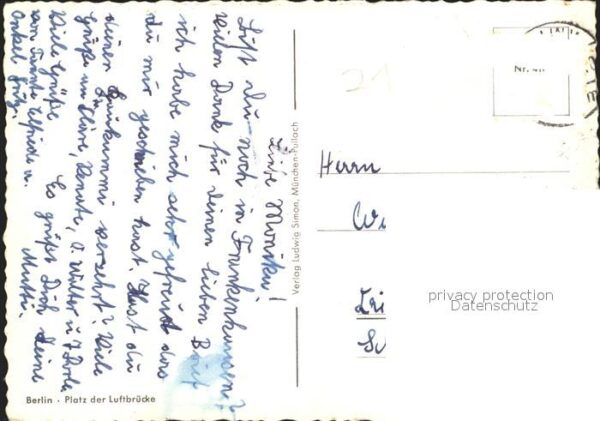 Liebe Monika!
Bist Du noch in Frankenhausen?
Vielen Dank für Deinen lieben Brief
ich habe mich sehr gefreut das
Du mir geschrieben hast. Hast du
deinen verzehrt? Viele
Grüße an Renate, O. Walter u.
Viele Grüße Es grüßt Dich Deine
von Tante Elfriede u. Mutti.
Onkel Fritz.
Verlag Ludwig Simon, München-Pullach
Nr.
Herrn
privacy protection
Datenschutz
Berlin · Platz der Luftbrücke